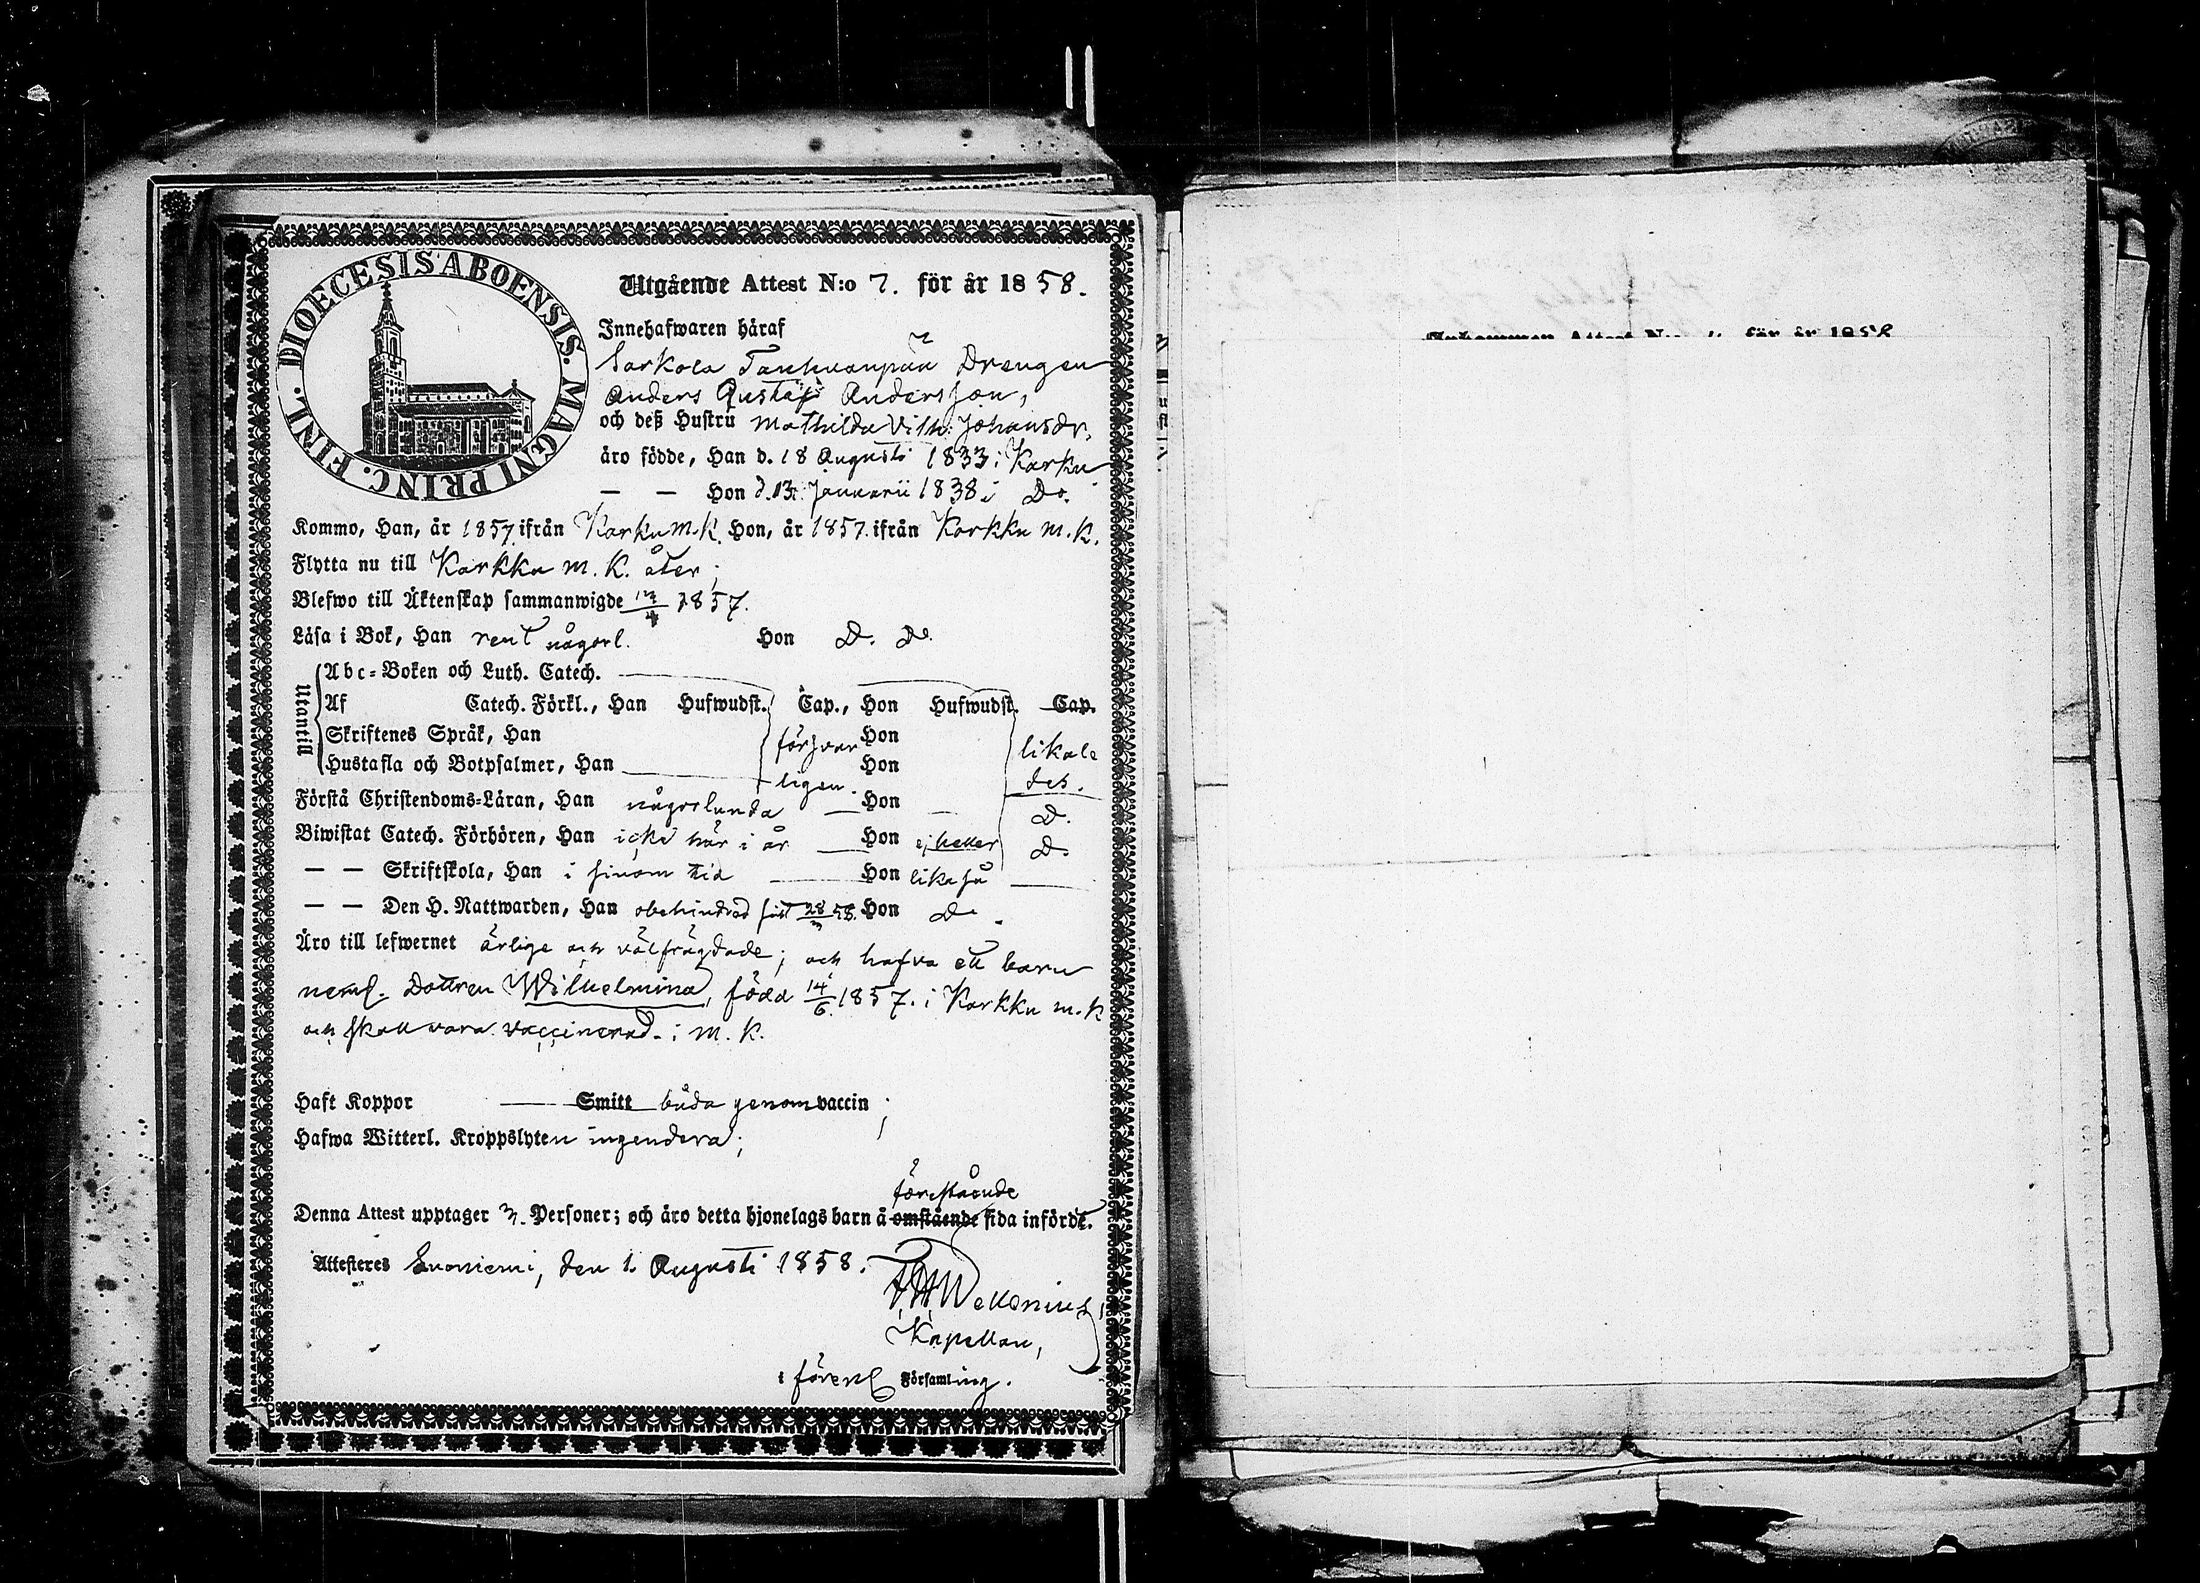 DIOECESIS ABOENSIS. MAGNI PRINC. FINL.
Utgående Attest N:o 7. för år 1858.
Innehafwaren häraf
Sarkola Tanhuanpää Drengen
Anders Gustaf Andersson,
och deß Hustru Mathilda Vilh: Johansdr,
äro födde, Han d. 18 Augusti 1833 i Karku
— — Hon d. 13 Januarii 1838 i Do.
Kommo, Han, år 1857 ifrån Karku M.K. Hon, år 1857. ifrån Karkku M.K.
Flytta nu till Karkku M.K. åter;
Blefwo till Äktenskap sammanwigde 1857.
Läsa i Bok, Han rent någorl. Hon D. Do.
Utantill
Abc-Boken och Luth. Catech.
Af Catech. Förkl., Han Hufwudst. Cap., Hon Hufwudst. Cap.
Skriftenes Språk, Han försvar Hon likale
Hustafla och Botpsalmer, Han ligen. Hon des.
Förstå Christendoms-Läran, Han någorlunda — Hon — D.
Biwistat Catech. Förhören, Han icke här i år — Hon ej heller D.
— — Skriftskola, Han i sinom tid — Hon likaså —
— — Den H. Nattwarden, Han obehindrad sist 28/3 58. Hon Do.
Äro till lefwernet ärlige och välfrägdade; och hafva ett barn
neml. Dottren Wilhelmina, född 14/6 1857. i Karkku m.k
och skall vara vaccinerad i M.K.
Haft Koppor — Smitt båda genom vaccin;
Hafwa Witterl. Kroppslyten ingendera;
förestående
Denna Attest upptager 3. Personer; och äro detta hjonelags barn å omstående sida införde.
Attesteres Suoniemi, den 1. Augusti 1858.
Wellenius,
Kapellan,
i förenl Församling.
Inkommen Attest N:o för år 1858